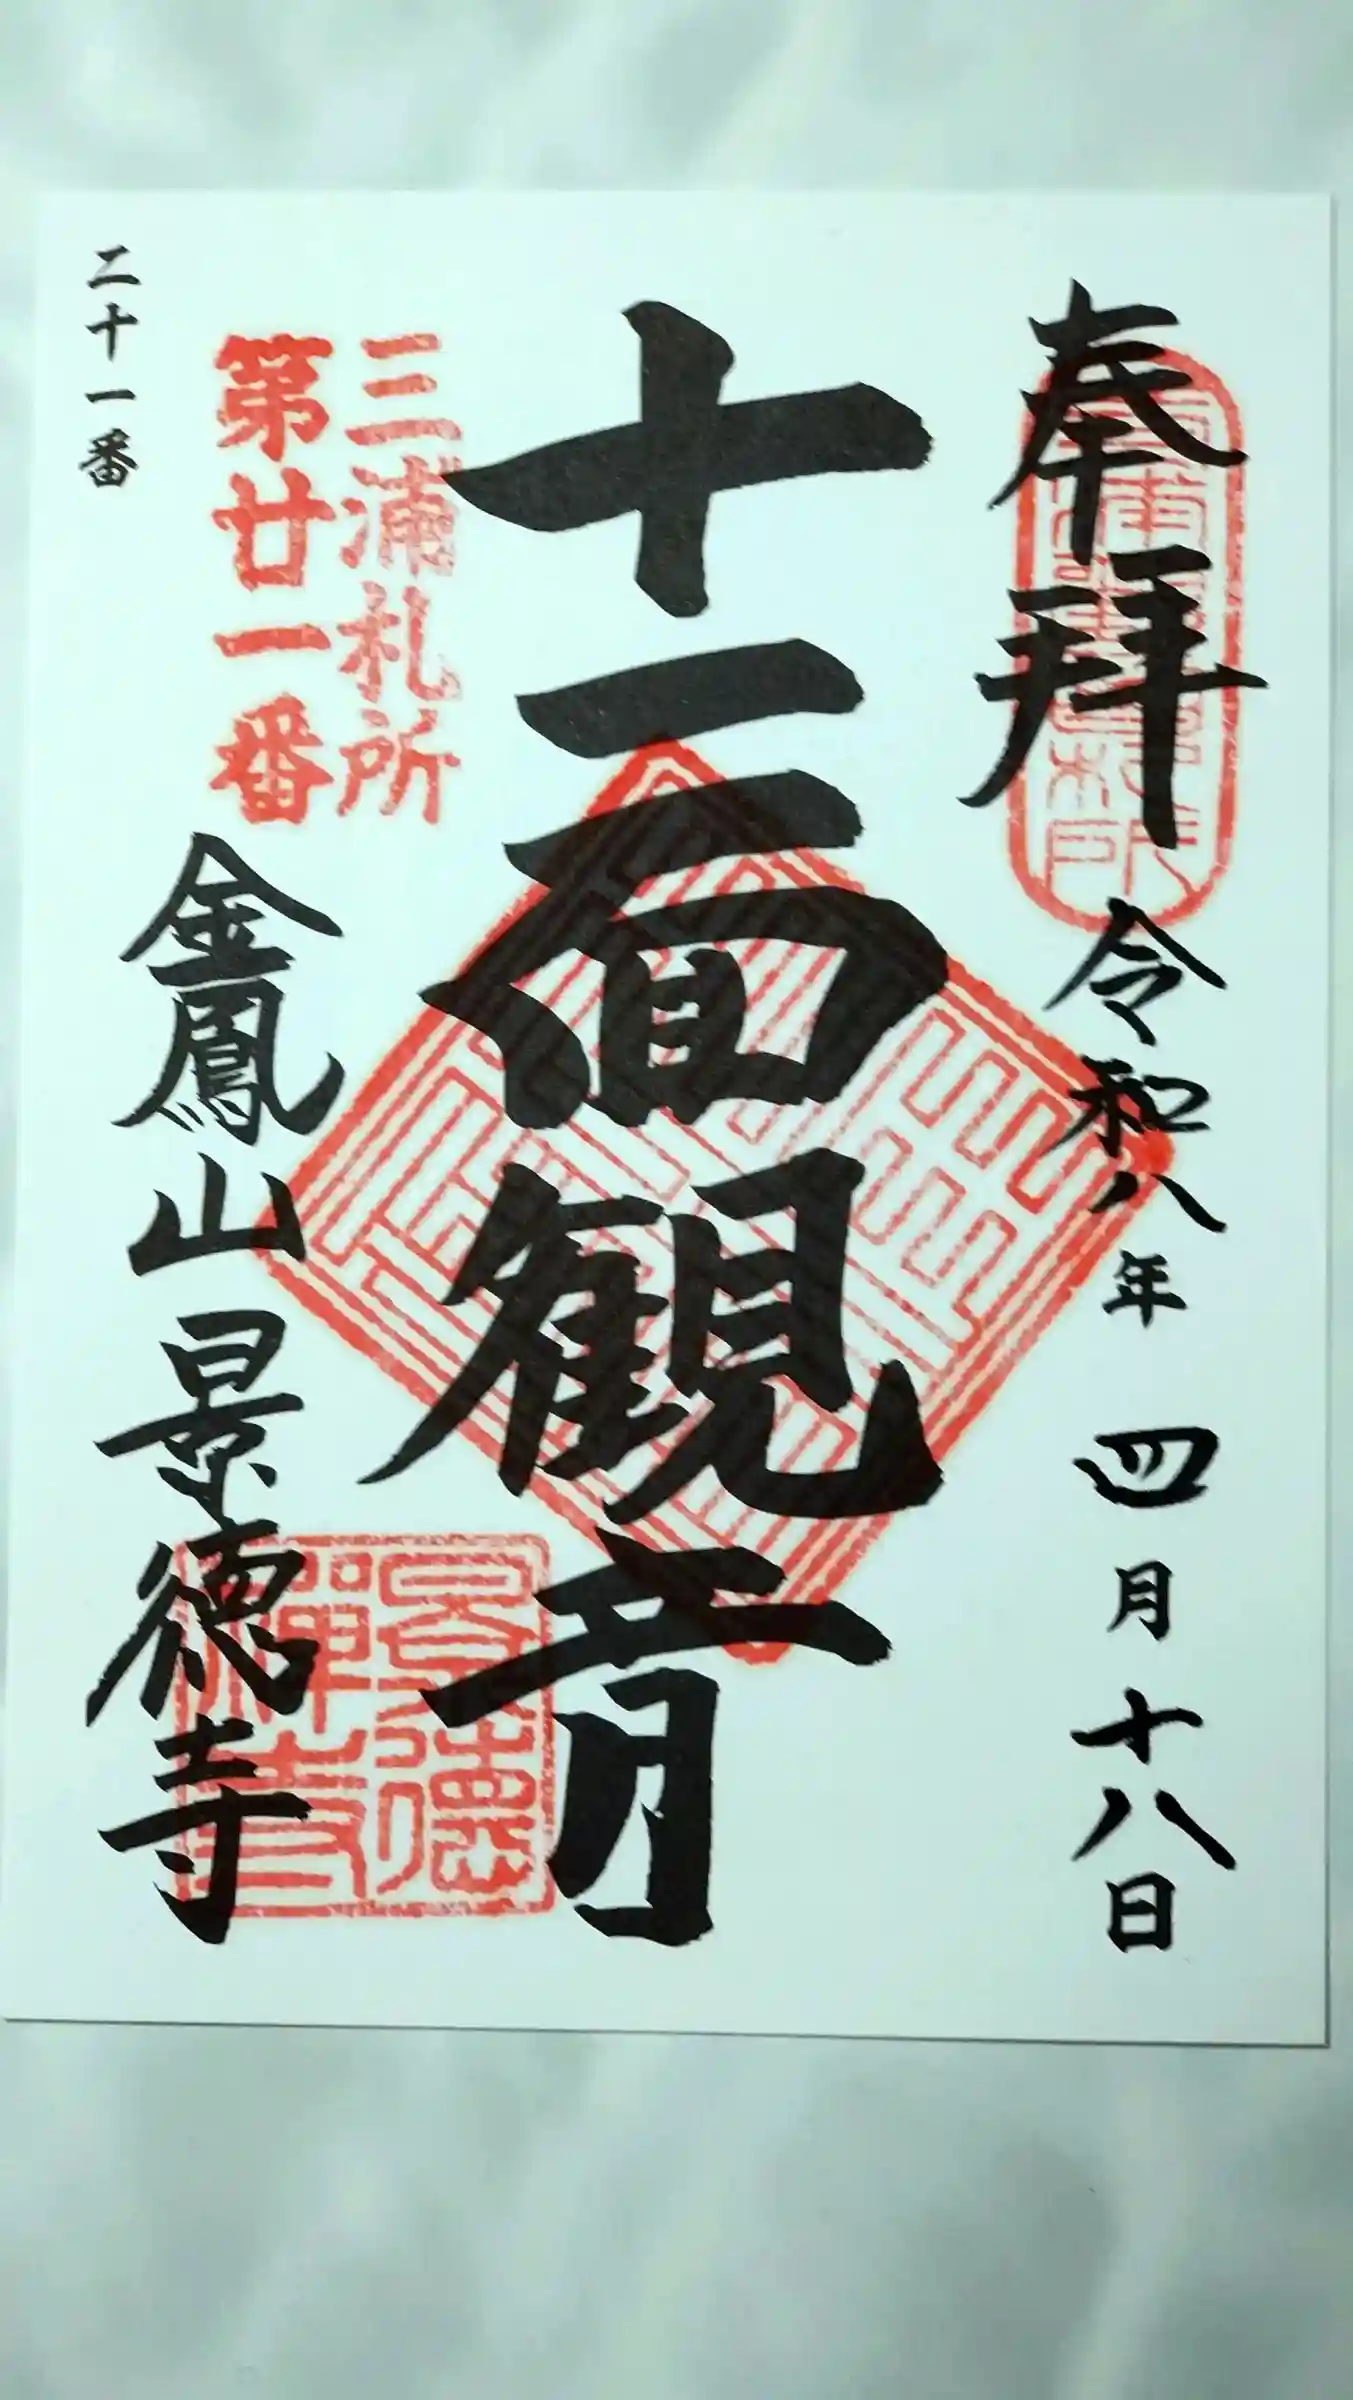 奉拝
令和八年四月十八日
十一面観音
三浦札所
第廿一番
金鳳山景徳寺
景徳
禅寺
二十一番